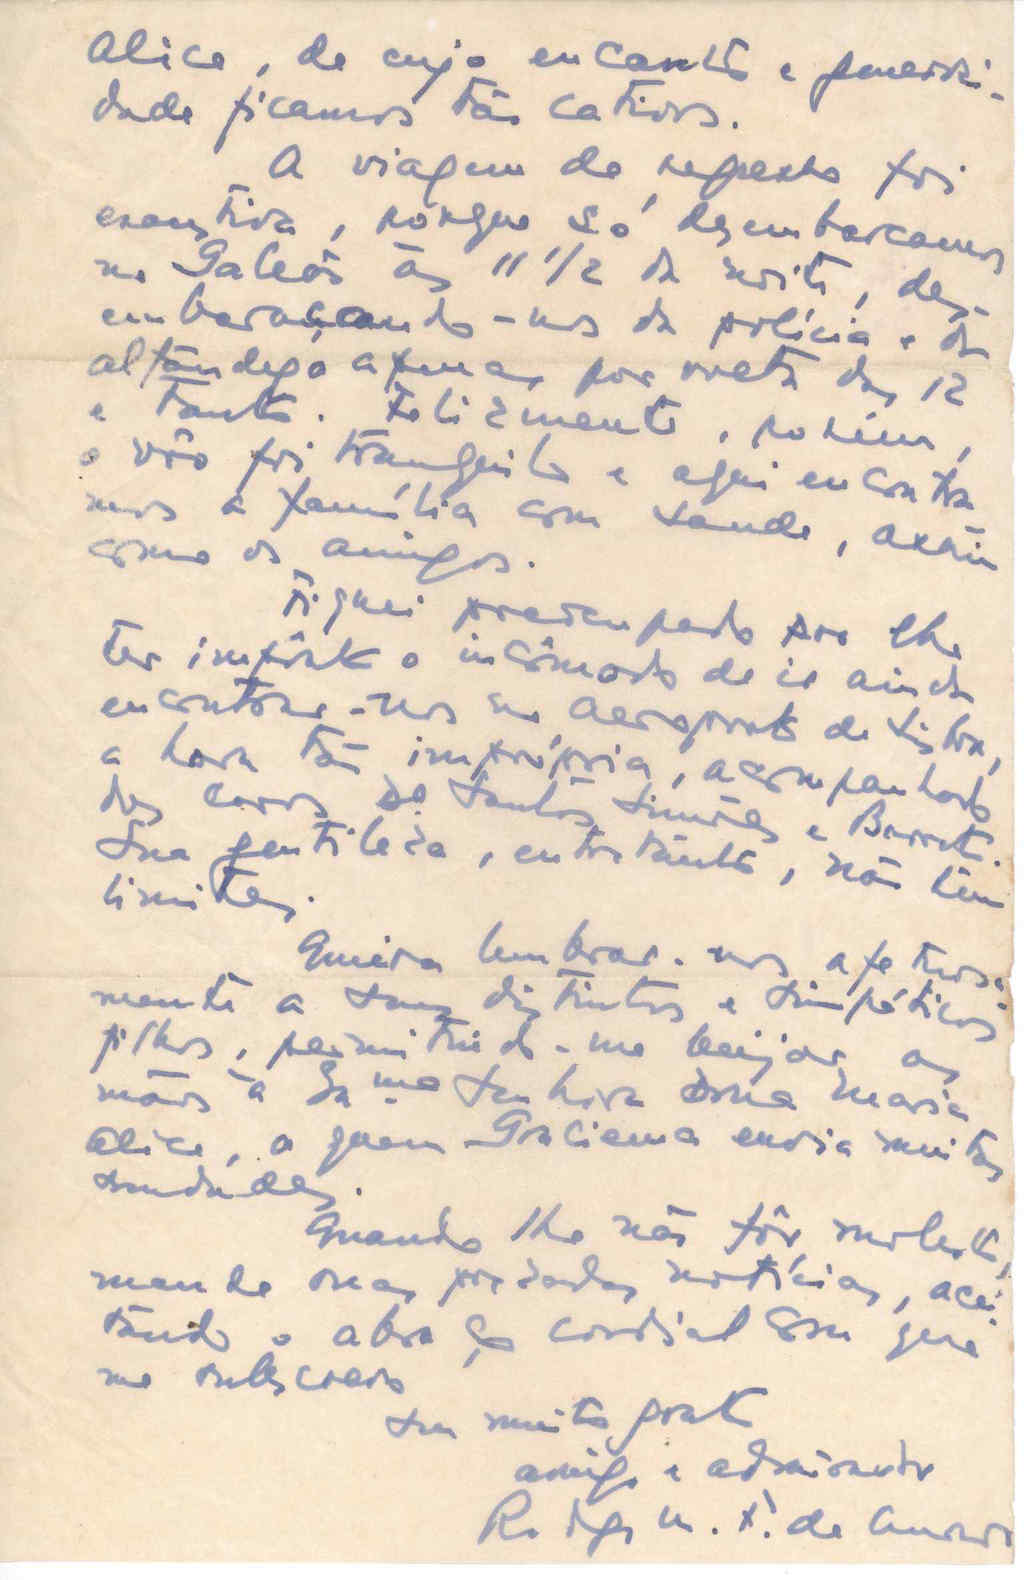 Alice, de cujo encanto e generosi-
dade ficamos tão cativos.
A viagem de regresso foi
exaustiva, porque só desembarcamos
no Galeão às 11 1/2 da noite, des-
embaraçando-nos da polícia e da
alfândega apenas por volta das 12
e tanto. Felizmente, porém,
o vôo foi tranquilo e aqui encontra
mos a família com saude, assim
como os amigos.
Fiquei preocupado por lhe
ter impôsto o incômodo de ir ainda
encontrar-nos no aeroporto de Lisboa,
a hora tão imprópria, acompanhado
dos caros Santos Simões e Barreto.
Sua gentileza, entretanto, não tem
limites.
Queira lembrar-nos afetuosa-
mente a seus distintos e simpáticos
filhos, permitindo-me beijar as
mãos à Exma Senhora Dona Maria
Alice, a quem Graciema envia muitas
saudades.
Quando lhe não fôr molesto,
mande suas prezadas notícias, acei-
tando o abraço cordial com que
me subscrevo
seu muito grato
amigo e admirador
Rodrigo M. F. de Andrade